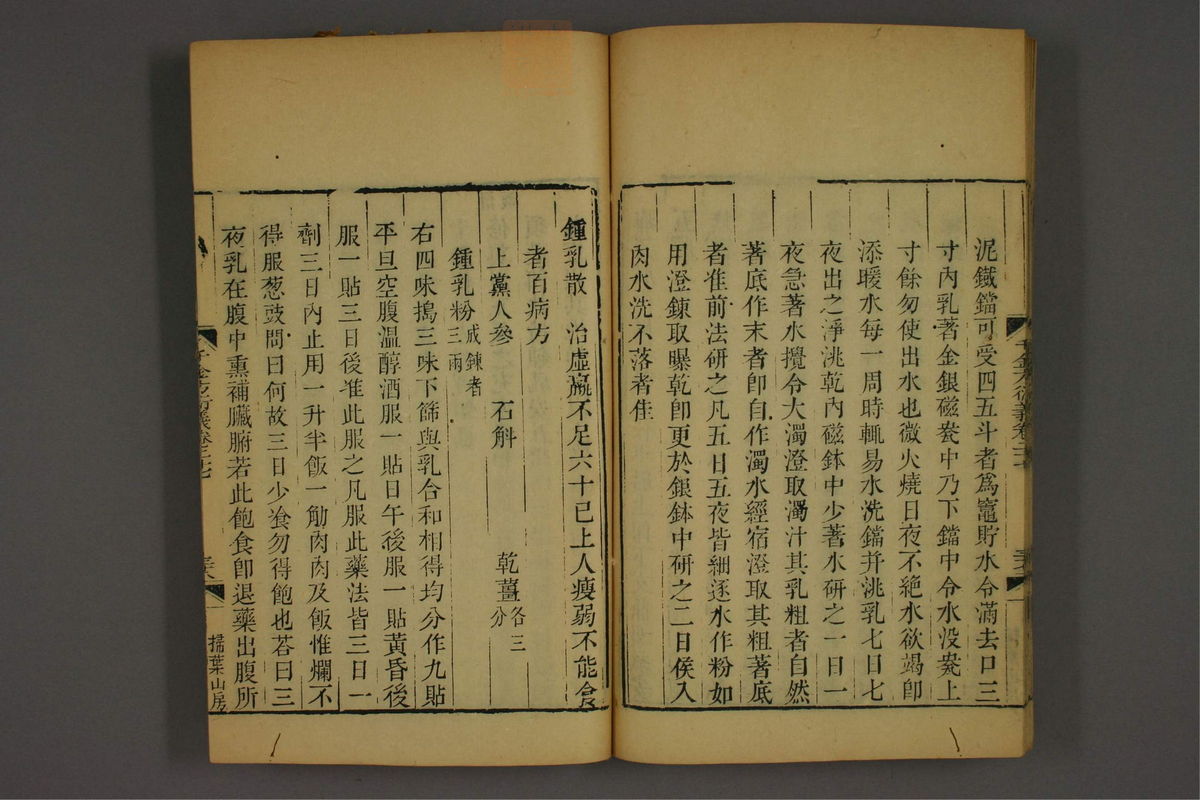 泥鐵鐺可受四五斗者爲竈貯水令滿去口三
寸內乳著金銀磁瓷中乃下鐺中令水没瓷上
寸餘勿使出水也微火燒日夜不絶水欲竭卽
添暖水每一周時輒易水洗鐺并洮乳七日七
夜出之淨洮乾內磁鉢中少著水研之一日一
夜急著水攪令大濁澄取濁汁其乳粗者自然
著底作末者卽自作濁水經宿澄取其粗著底
者准前法研之凡五日五夜皆細逐水作粉如
用澄鍊取曝乾卽更於銀鉢中研之二日候入
肉水洗不落者佳
鍾乳散 治虛羸不足六十已上人瘦弱不能食
者百病方
上黨人參 石斛 乾薑各三分
鍾乳粉成鍊者三兩
右四味搗三味下篩與乳合和相得均分作九貼
平旦空腹溫醇酒服一貼日午後服一貼黃昏後
服一貼三日後准此服之凡服此藥法皆三日一
劑三日內止用一升半飯一觔肉肉及飯惟爛不
得服葱豉問曰何故三日少飡勿得飽也荅曰三
夜乳在腹中熏補臟腑若此飽食卽退藥出腹所
千金方衍義卷二十七
掃葉山房